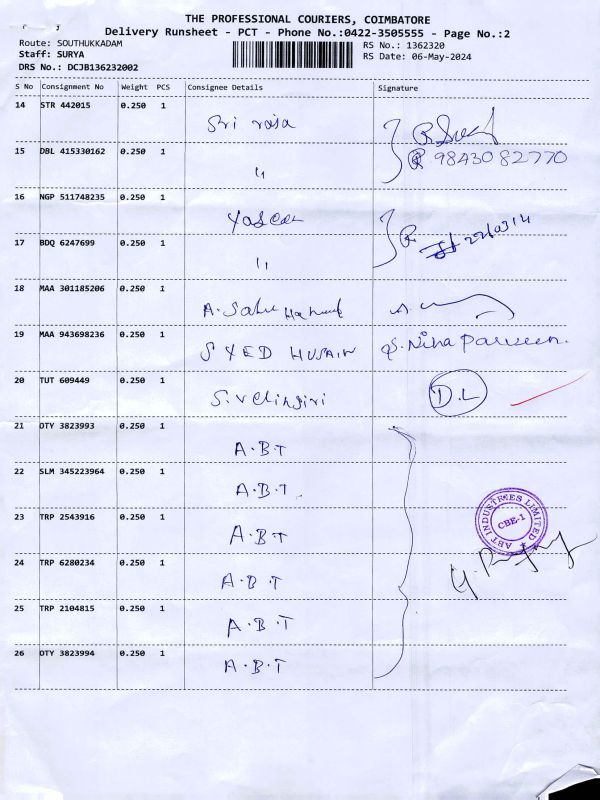 THE PROFESSIONAL COURIERS, COIMBATORE
Delivery Runsheet - PCT - Phone No.:0422-3505555 - Page No.:2
Route: SOUTHUKKADAM
Staff: SURYA
DRS No.: DCJB136232002
RS No.: 1362320
RS Date: 06-May-2024
S No Consignment No Weight PCS Consignee Details Signature
14 STR 442015 0.250 1 Sri raja
15 DBL 415330162 0.250 1 " 9843082770
16 NGP 511748235 0.250 1 Yaseen
17 BDQ 6247699 0.250 1 "
18 MAA 301185206 0.250 1 A.
19 MAA 943698236 0.250 1 SYED HUSAIN S. Niha Parveen.
20 TUT 609449 0.250 1 S. Velingiri D.L
21 OTY 3823993 0.250 1 A.B.T
22 SLM 345223964 0.250 1 A.B.T
23 TRP 2543916 0.250 1 A.B.T
24 TRP 6280234 0.250 1 A.B.T
25 TRP 2104815 0.250 1 A.B.T
26 OTY 3823994 0.250 1 A.B.T
ABT INDUSTRIES LIMITED
CBE-1